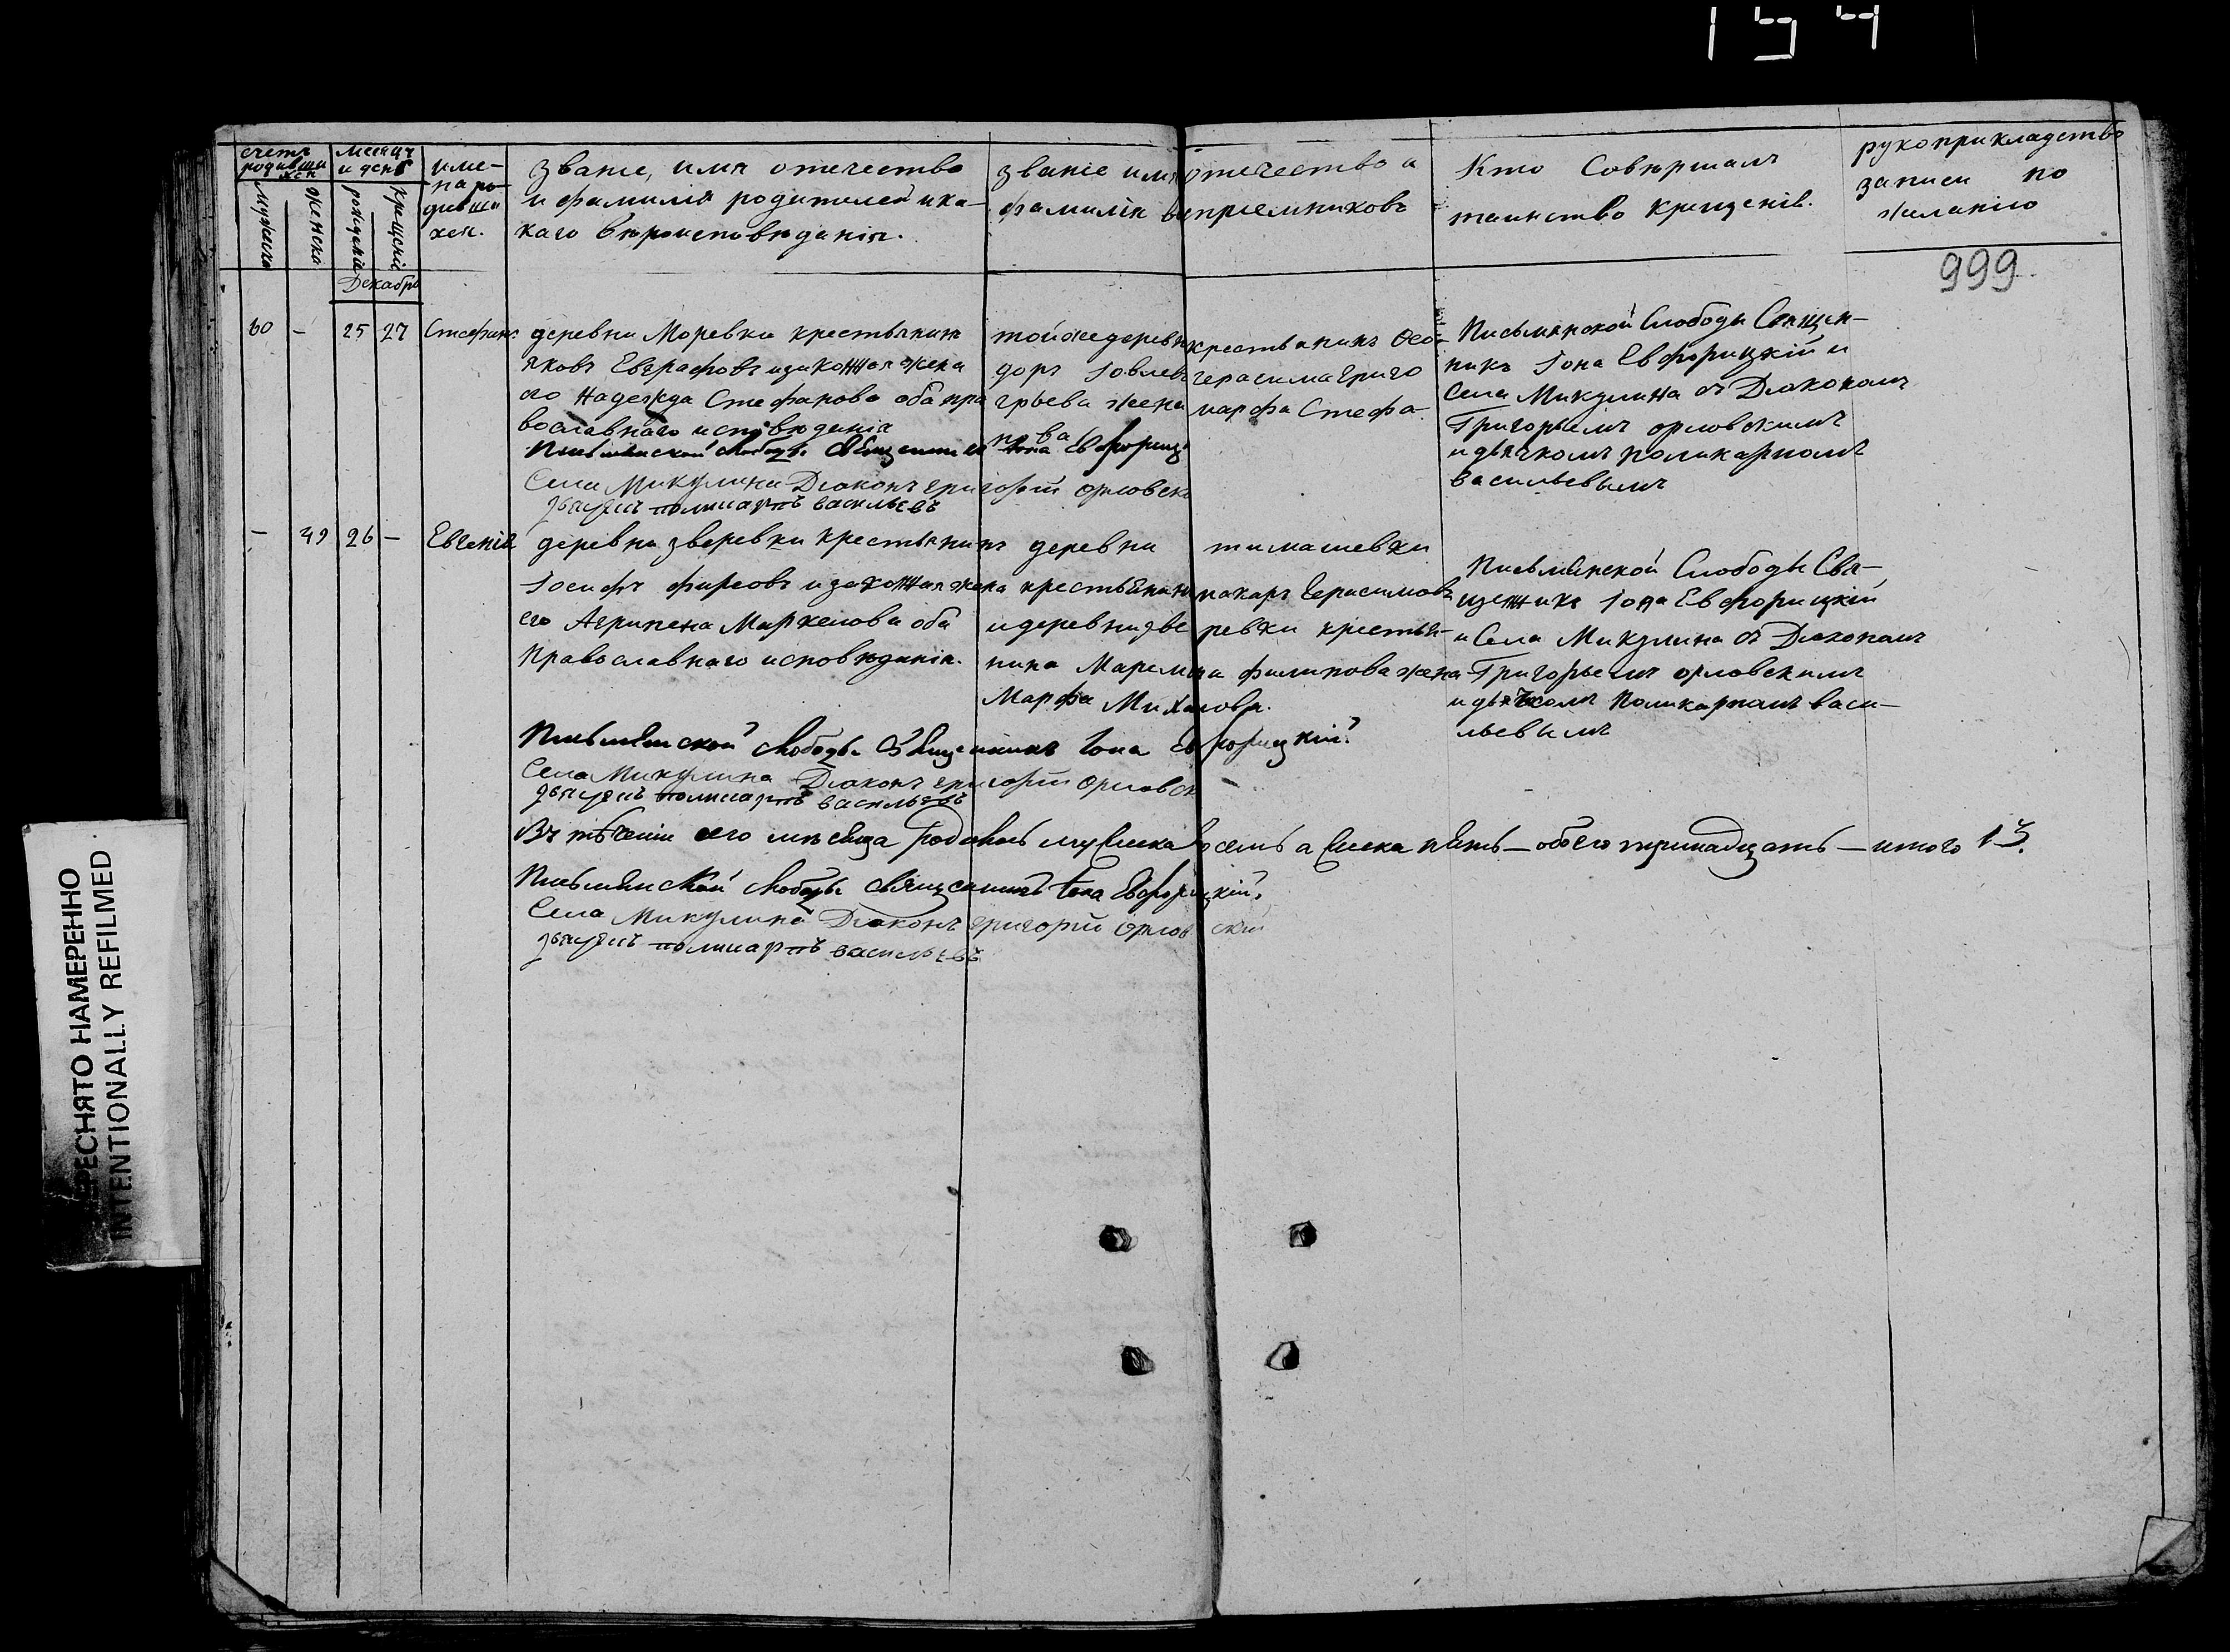 154
счетъ родившихся
мужска
женска
Месяцъ и день
рожденіе
крещеніе
Декабрь
име-
на ро-
дивши
хся.
званіе, имя отечество
и фамилія родителей и ка-
каго вѣроисповѣданія.
званіе имя отечество а
фамилія воспріемниковъ
Кто Совершалъ
таинство крещенія.
рукоприкладство
записи по
желанію
999
60 — 25 27 Стефанъ
деревни Моревки крестьянинъ
яковъ Евграфовъ и законная жена
его Надежда Стефанова оба пра
вославнаго исповѣданія
той же деревни крестьянинъ Ѳео-
доръ Іовлевъ герасима григо
грьева жена марфа Стефа-
нова
Письмянской Слободы Священ-
никъ Іона Евфорицкій и
Села Микулина съ Діакономъ
Григорьемъ орловскимъ
и дьячкомъ поликарпомъ
васильевымъ
Письмянской слободы Священникъ Іона Евфориц
Села Микулина Діаконъ григорій орловск
дьячекъ поликарпъ васильевъ
— 49 26 — Евгенія
деревни зверевки крестьянинъ
Іосифъ фирсовъ и законная жена
его Агрипена Маркелова оба
Православнаго исповѣданія.
деревни тимашевки
крестьянинъ макаръ герасимовъ
и деревни зверевки крестья-
нина филипова жена
Марфа
Письмянской Слободы Свя-
щенникъ Іона Евфорицкій
и Села Микулина съ Діакономъ
Григорьемъ орловскимъ
и дьячкомъ Поликарпомъ васи-
льевымъ
Письмянской слободы Священникъ Іона Евфорицкій
Села Микулина Діаконъ григорій орловск
дьячекъ поликарпъ васильевъ
Въ теченіи сего месяца родилось мужеска восемь а женска пять — обоего тринадцать — итого 13.
Письмянской слободы священникъ Іона Евфорицкій
Села Микулина Діаконъ григорій орловскій
дьячекъ поликарпъ васильевъ
РЕСНЯТО НАМЕРЕННО
INTENTIONALLY REFILMED